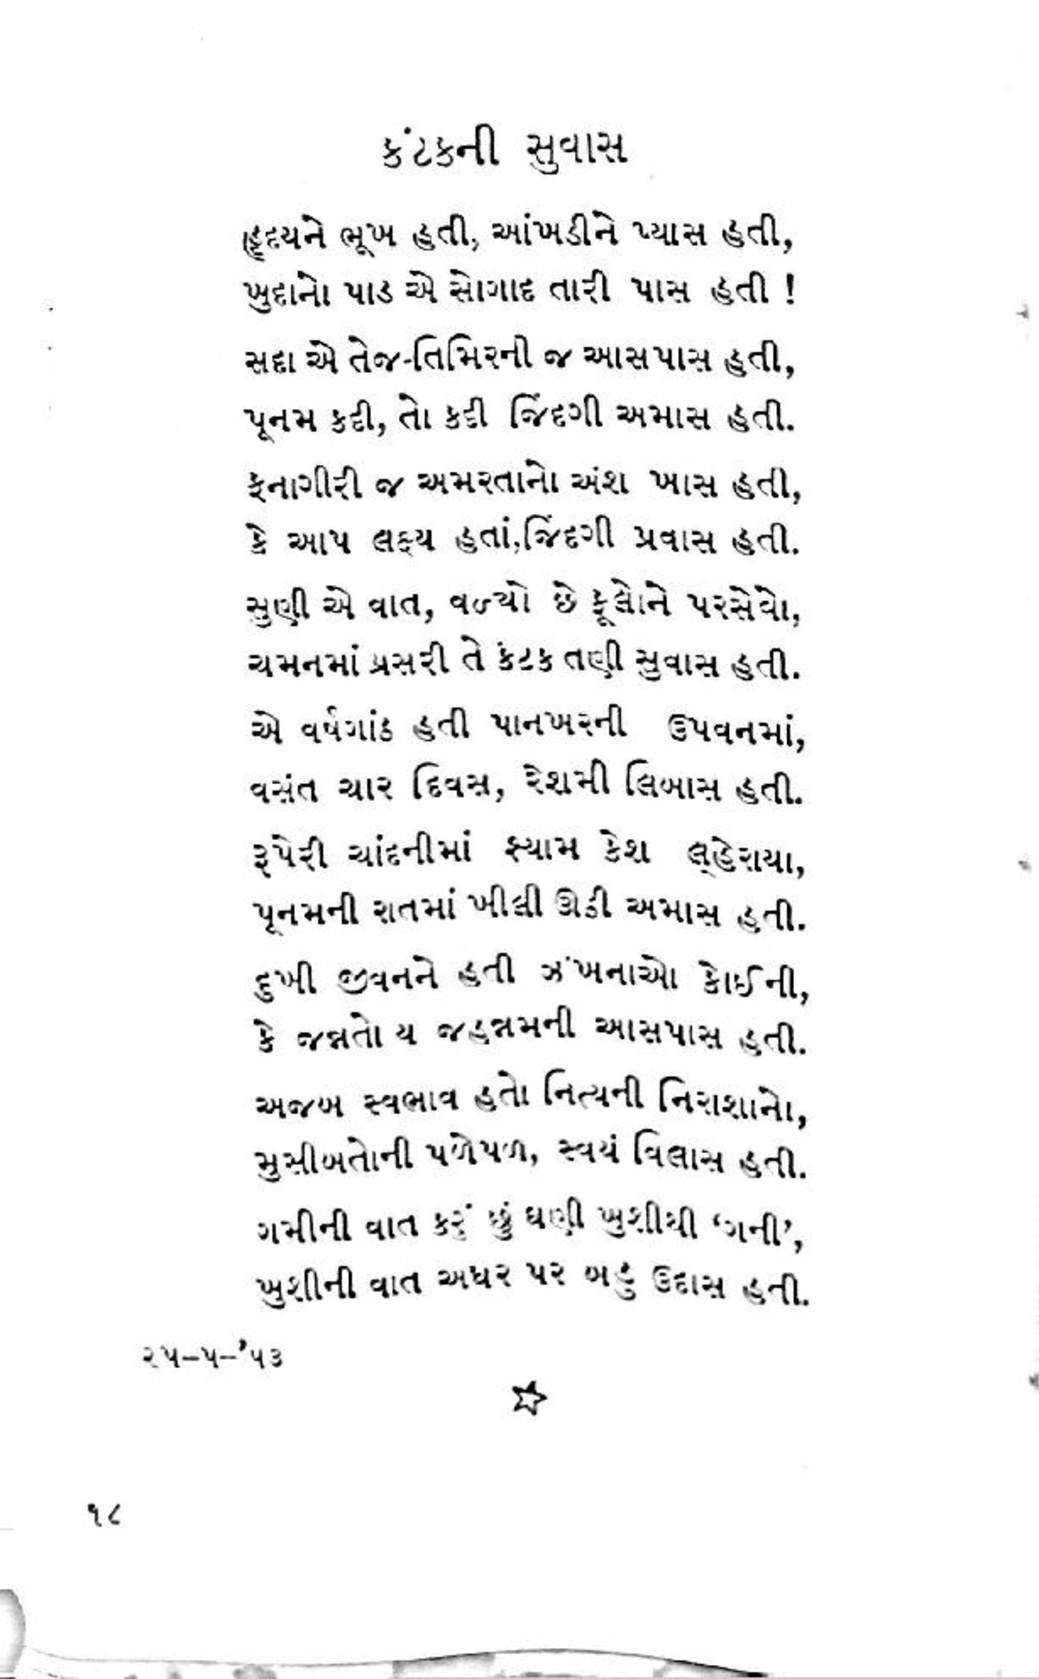 કંટકની સુવાસ
હૃદયને ભૂખ હતી, આંખડીને પ્યાસ હતી,
ખુદાનો પાડ એ સોગાદ તારી પાસ હતી !
સદા એ તેજ-તિમિરની જ આસપાસ હતી,
પૂનમ કદી, તો કદી જિંદગી અમાસ હતી.
ફનાગીરી જ અમરતાનો અંશ ખાસ હતી,
કે આપ લક્ષ્ય હતાં,જિંદગી પ્રવાસ હતી.
સુણી એ વાત, વળ્યો છે ફૂલોને પરસેવો,
ચમનમાં પ્રસરી તે કંટક તણી સુવાસ હતી.
એ વર્ષગાંઠ હતી પાનખરની ઉપવનમાં,
વસંત ચાર દિવસ, રેશમી લિબાસ હતી.
રૂપેરી ચાંદનીમાં શ્યામ કેશ લ્હેરાયા,
પૂનમની રાતમાં ખીલી ઊઠી અમાસ હતી.
દુખી જીવનને હતી ઝંખનાઓ કોઈની,
કે જન્નતો ય જહન્નમની આસપાસ હતી.
અજબ સ્વભાવ હતો નિત્યની નિરાશાનો,
મુસીબતોની પળેપળ, સ્વયં વિલાસ હતી.
ગમીની વાત કરું છું ઘણી ખુશીથી ‘ગની’,
ખુશીની વાત અધર પર બહુ ઉદાસ હતી.
૨૫-૫-’૫૩
૧૮